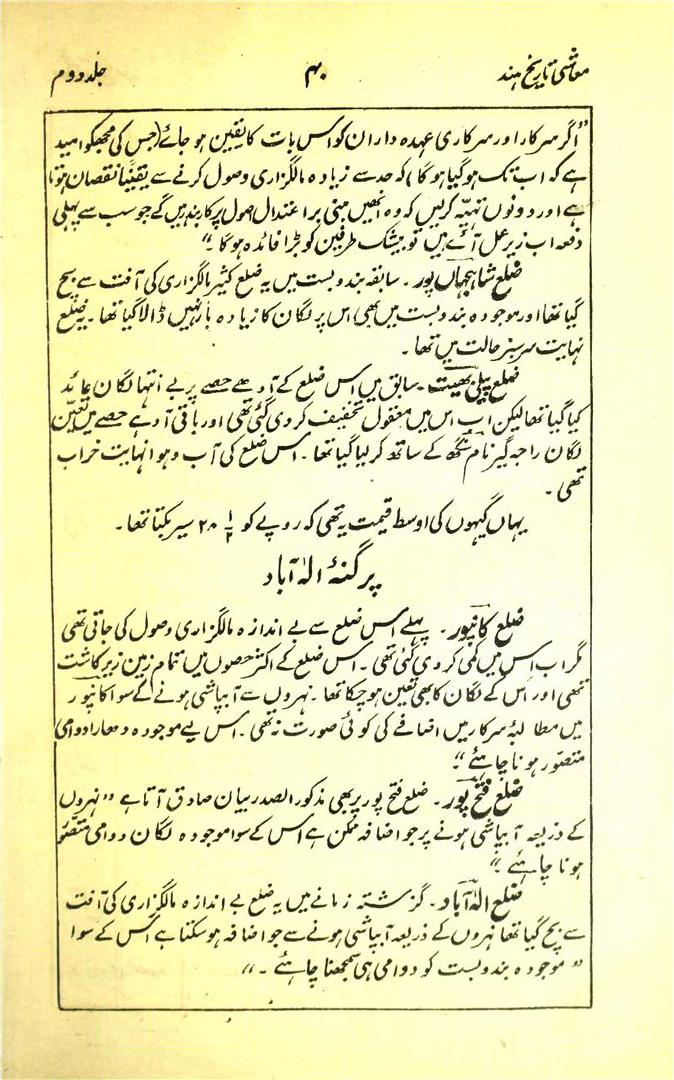 معاشی تاریخ ہند ۴۰ جلد دوم
"اگر سرکار اور سرکاری عہدہ داران کو اس بات کا یقین ہو جائے (جس کی مجھکو امید
ہے کہ اب تک ہو گیا ہوگا) کہ حد سے زیادہ مالگزاری وصول کرنے سے یقیناً نقصان ہوتا
ہے اور دونوں تہیّہ کرلیں کہ وہ انھیں مبنی بر اعتدال اصول پر کاربند ہیں گے جو سب سے پہلی
دفعہ اب زیر عمل آئے ہیں تو بیشک طرفین کو بڑا فائدہ ہوگا۔"
ضلع شاہجہاں پور۔ سابقہ بندوبست میں یہ ضلع کثیر مالگزاری کی آفت سے بچ
گیا تھا اور موجودہ بندوبست میں بھی اس پر لگان کا زیادہ بار نہیں ڈالا گیا تھا۔ یہ ضلع
نہایت سرسبز حالت میں تھا۔
ضلع پیلی بھیت۔ سابق میں اس ضلع کے آدھے حصے پر بے انتہا لگان عائد
کیا گیا تھا لیکن اب اس میں معقول تخفیف کردی گئی تھی اور باقی آدہے حصے میں تعیّن
لگان راجہ گیر نام سنگھ کے ساتھ کرلیا گیا تھا۔ اس ضلع کی آب و ہوا نہایت خراب
تھی۔
یہاں گیہوں کی اوسط قیمت یہ تھی کہ روپے کو ۲۸ ۱/۲ سیر بکتا تھا۔
پرگنۂ الہٰ آباد
ضلع کانپور۔ پہلے اس ضلع سے بے اندازہ مالگزاری وصول کی جاتی تھی
مگر اب اس میں کمی کردی گئی تھی۔ اس ضلع کے اکثر حصوں میں تمام زمین زیر کاشت
تھی اور اس کے لگان کا بھی تعین ہوچکا تھا۔ نہروں سے آبپاشی ہونے کے سوا کانپور
میں مطالبۂ سرکار میں اضافے کی کوئی صورت نہ تھی۔ اس لیے موجودہ دھارا دوامی
متصّور ہونا چاہئے"
ضلع فتح پور۔ ضلع فتح پور پر بھی مذکور الصدر بیان صادق آتا ہے "نہروں
کے ذریعہ آبپاشی ہونے پر جو اضافہ ممکن ہے اس کے سوا موجودہ لگان دوامی متصّور
ہونا چاہئے"
ضلع الہٰ آباد۔ گزشتہ زمانے میں یہ ضلع بے اندازہ مالگزاری کی آفت
سے بچ گیا تھا نہروں کے ذریعہ آبپاشی ہونے سے جو اضافہ ہوسکتا ہے اس کے سوا
"موجودہ بندوبست کو دوامی ہی سمجھنا چاہئے۔"